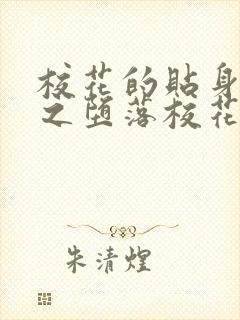 校花的贴身
之堕落校花
朱清煌